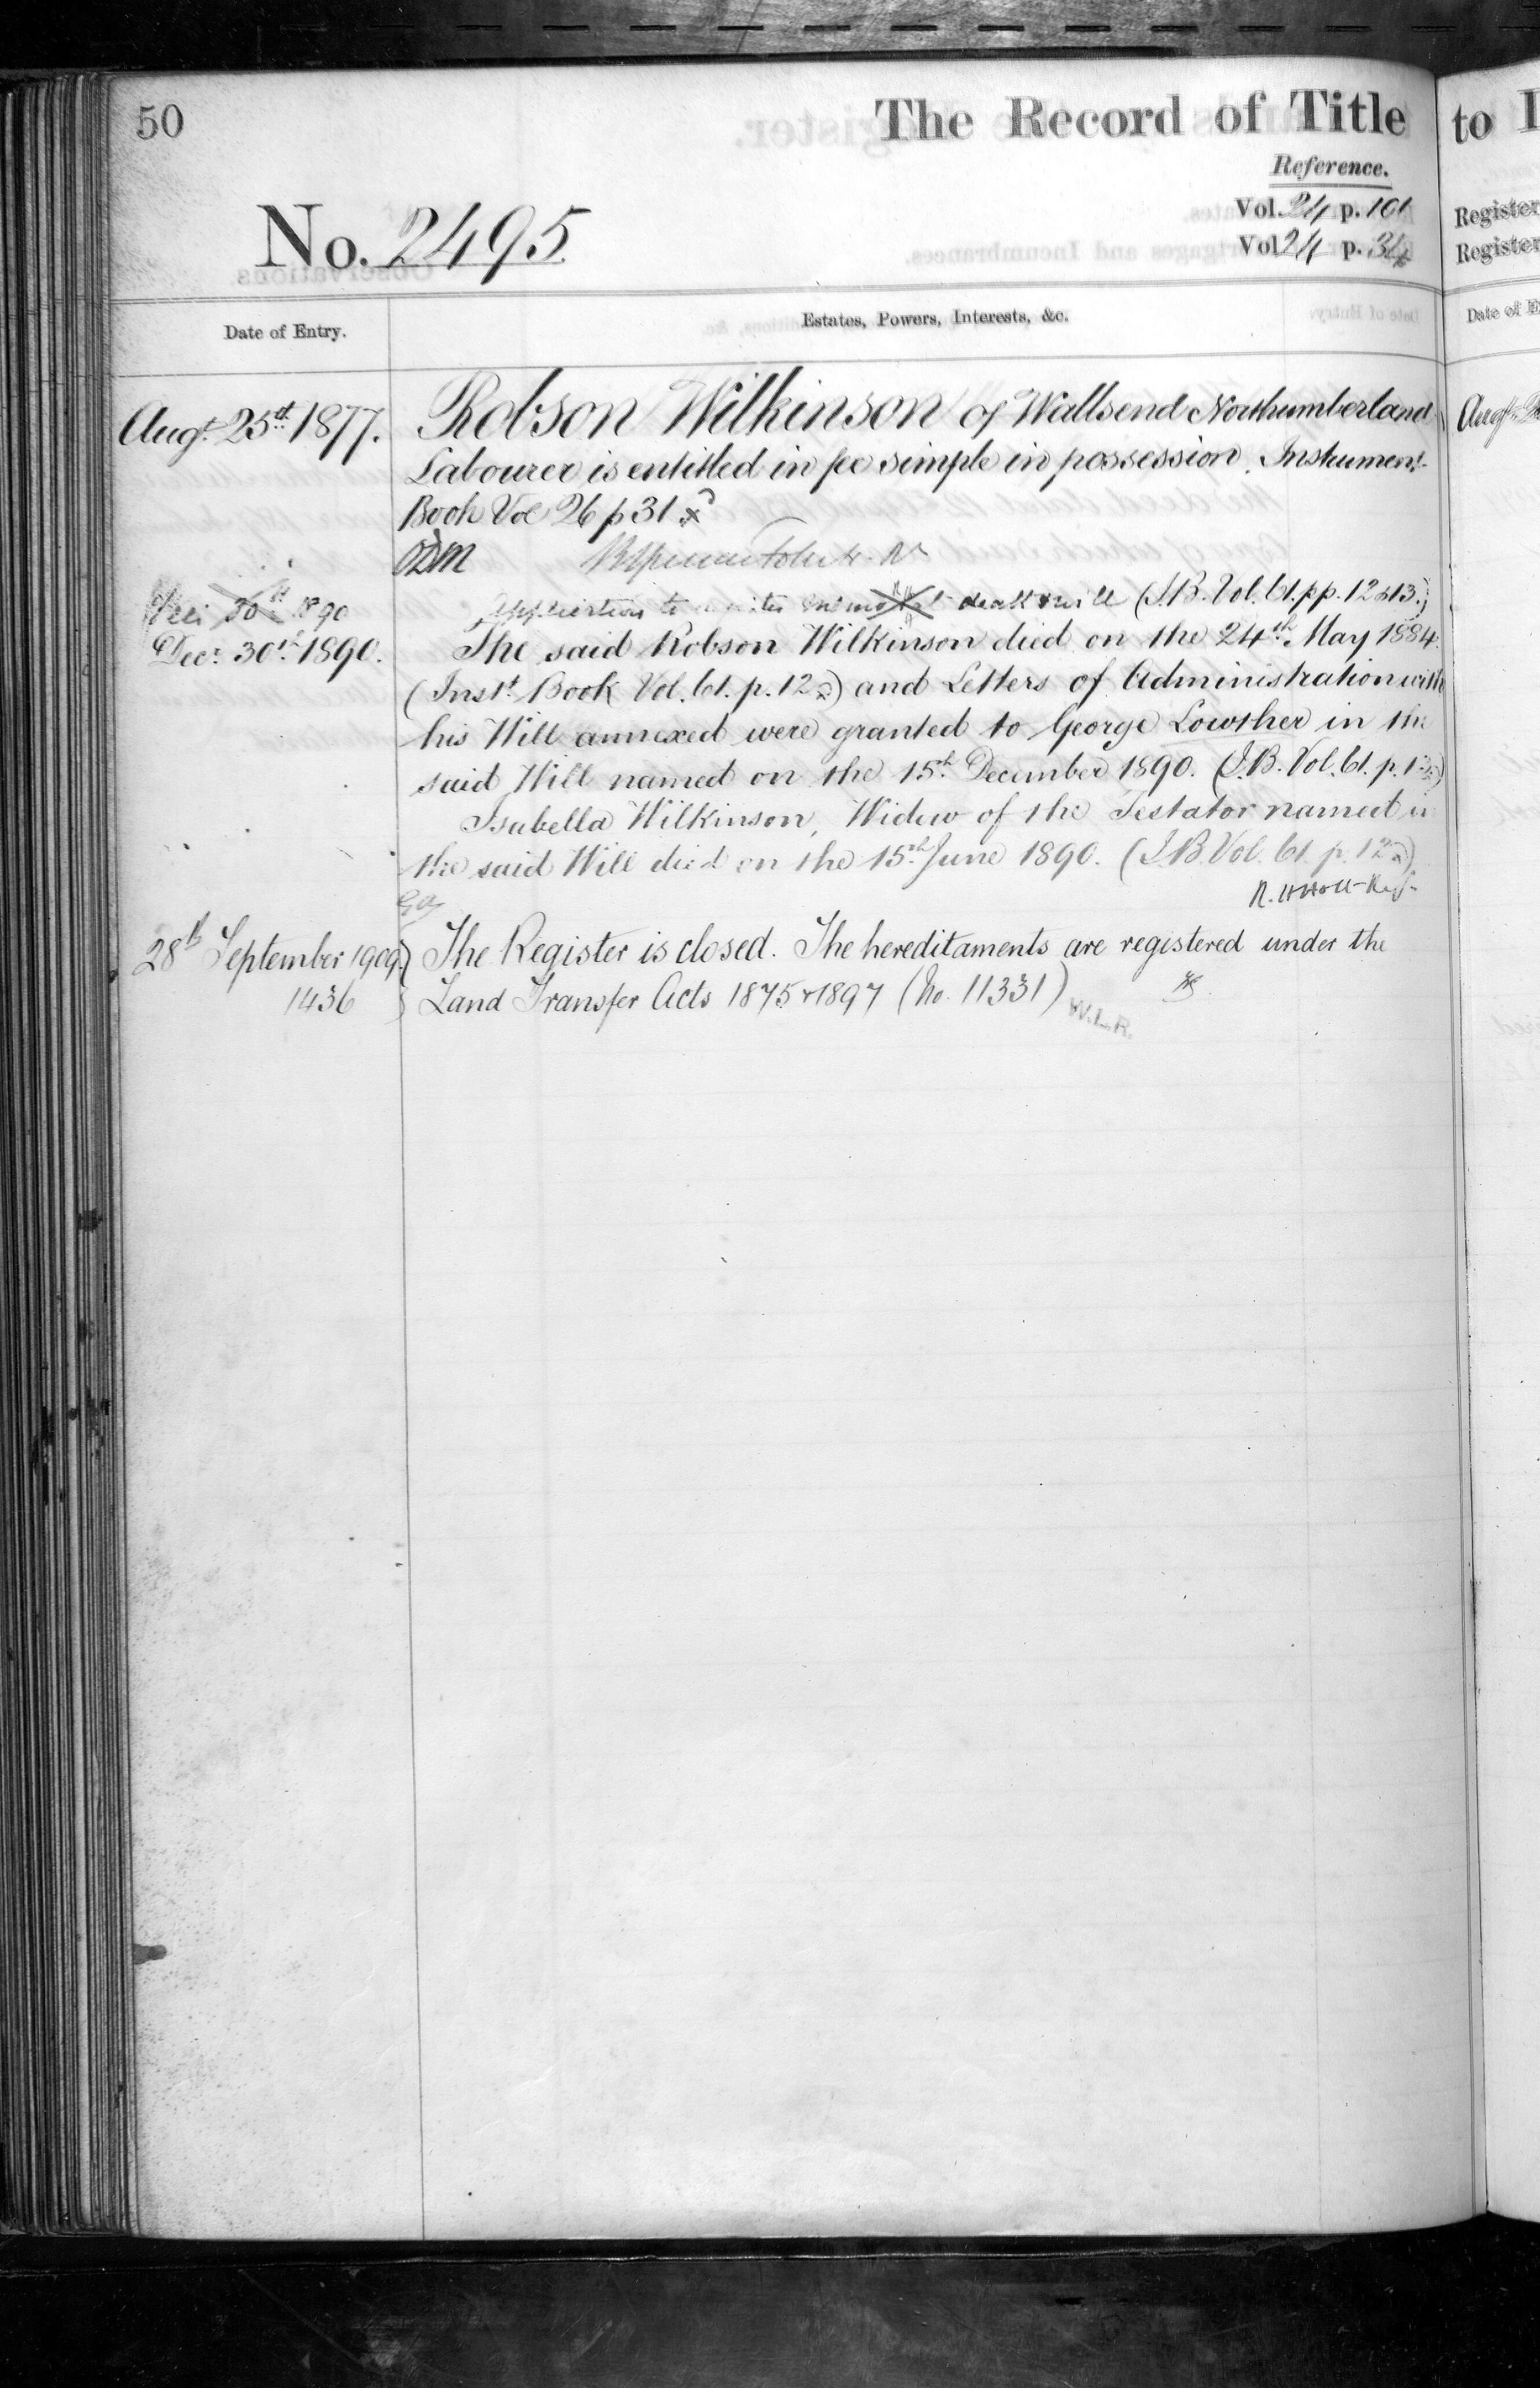 50
The Record of Title
to
Reference.
Vol. 24 p. 101
Vol 24 p. 34
Register
Register
No. 2495
Date of Entry.
Estates, Powers, Interests, &c.
Date of E
Augt. 25th 1877.
Robson Wilkinson of Wallsend Northumberland
Labourer is entitled in fee simple in possession. Instrument
Book Vol 26 p 31
Dec. 30th 1890
Application to death & will (I.B. Vol. 61. pp. 12 & 13.)
Decr. 30th 1890.
The said Robson Wilkinson died on the 24th May 1884
(Inst. Book Vol. 61. p. 12) and Letters of Administration with
his Will annexed were granted to George Lowther in the
said Will named on the 15th December 1890. (I.B. Vol. 61. p. 13)
Isabella Wilkinson, Widow of the Testator named in
the said Will died on the 15th June 1890. (I.B. Vol. 61. p. 12)
28th September 1909
The Register is closed. The hereditaments are registered under the
1436
Land Transfer Acts 1875 & 1897 (No. 11331)
W.L.R.